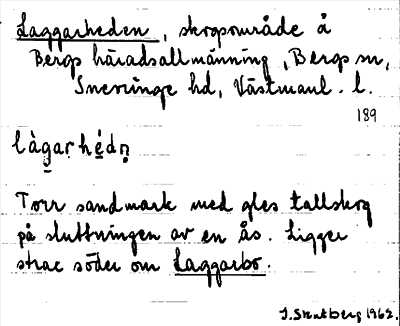 Laggarheden, skogsområde å
Bergs häradsallmänning, Bergs sn,
Snevringe hd, Västmanl. l.
189
làgarhédṇ
Torr sandmark med gles tallskog
på sluttningen av en ås. Ligger
strax söder om Laggarbo.
J. Stratberg 1962.